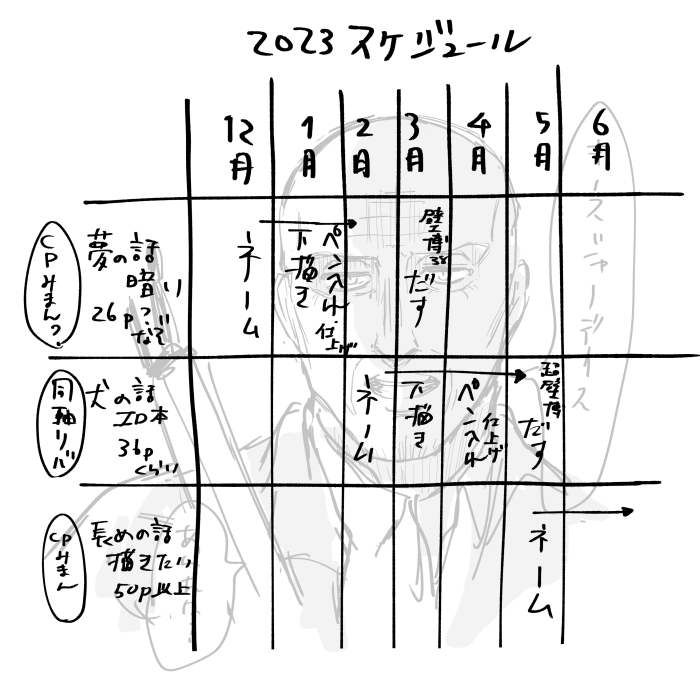 2023 スケジュール
12月
1月
2月
3月
4月
5月
6月
CPみまん?
夢の話
暗い
26p?
なぞ
ネーム
下描き
ペン入れ・仕上げ
壁博3/5
だす
同軸リバ
犬の話
ID本
36p
くらい
ネーム
下描き
ペン入れ
仕上げ
超壁博
だす
CPみまん
長めの話
描きたい
50p以上
ネーム